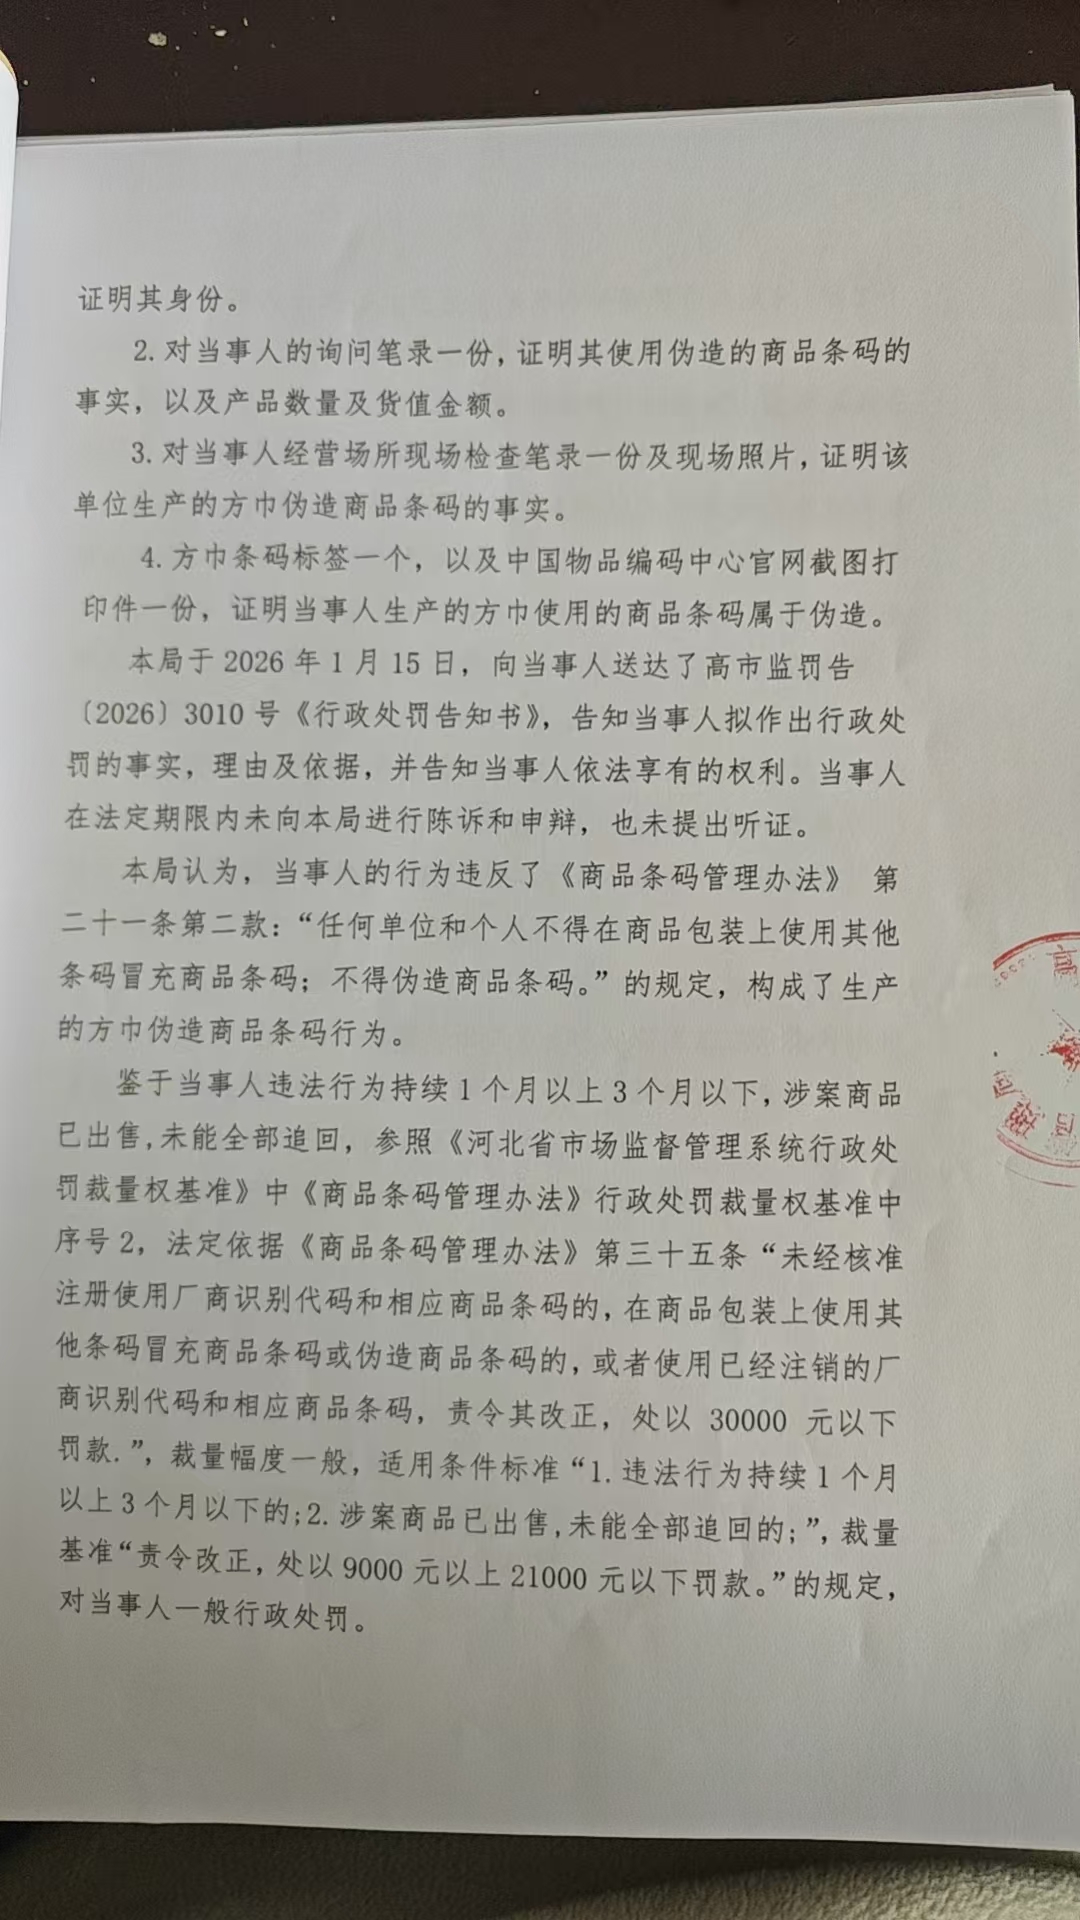 证明其身份。
2.对当事人的询问笔录一份，证明其使用伪造的商品条码的
事实，以及产品数量及货值金额。
3.对当事人经营场所现场检查笔录一份及现场照片，证明该
单位生产的方巾伪造商品条码的事实。
4.方巾条码标签一个，以及中国物品编码中心官网截图打
印件一份，证明当事人生产的方巾使用的商品条码属于伪造。
本局于2026年1月15日，向当事人送达了高市监罚告
〔2026〕3010号《行政处罚告知书》，告知当事人拟作出行政处
罚的事实，理由及依据，并告知当事人依法享有的权利。当事人
在法定期限内未向本局进行陈诉和申辩，也未提出听证。
本局认为，当事人的行为违反了《商品条码管理办法》 第
二十一条第二款：“任何单位和个人不得在商品包装上使用其他
条码冒充商品条码；不得伪造商品条码。”的规定，构成了生产
的方巾伪造商品条码行为。
鉴于当事人违法行为持续1个月以上3个月以下，涉案商品
已出售,未能全部追回，参照《河北省市场监督管理系统行政处
罚裁量权基准》中《商品条码管理办法》行政处罚裁量权基准中
序号2，法定依据《商品条码管理办法》第三十五条“未经核准
注册使用厂商识别代码和相应商品条码的，在商品包装上使用其
他条码冒充商品条码或伪造商品条码的，或者使用已经注销的厂
商识别代码和相应商品条码，责令其改正，处以 30000 元以下
罚款.”，裁量幅度一般，适用条件标准“1.违法行为持续1个月
以上3个月以下的;2.涉案商品已出售,未能全部追回的;”，裁量
基准“责令改正，处以9000元以上21000元以下罚款。”的规定，
对当事人一般行政处罚。